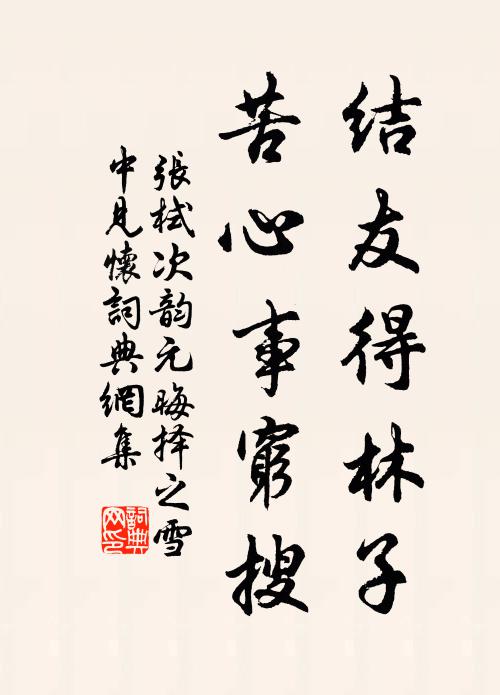 结友得林子
苦心事窮搜
張栻次韵元晦择之雪
中見懷詞典網集
詞典
网印